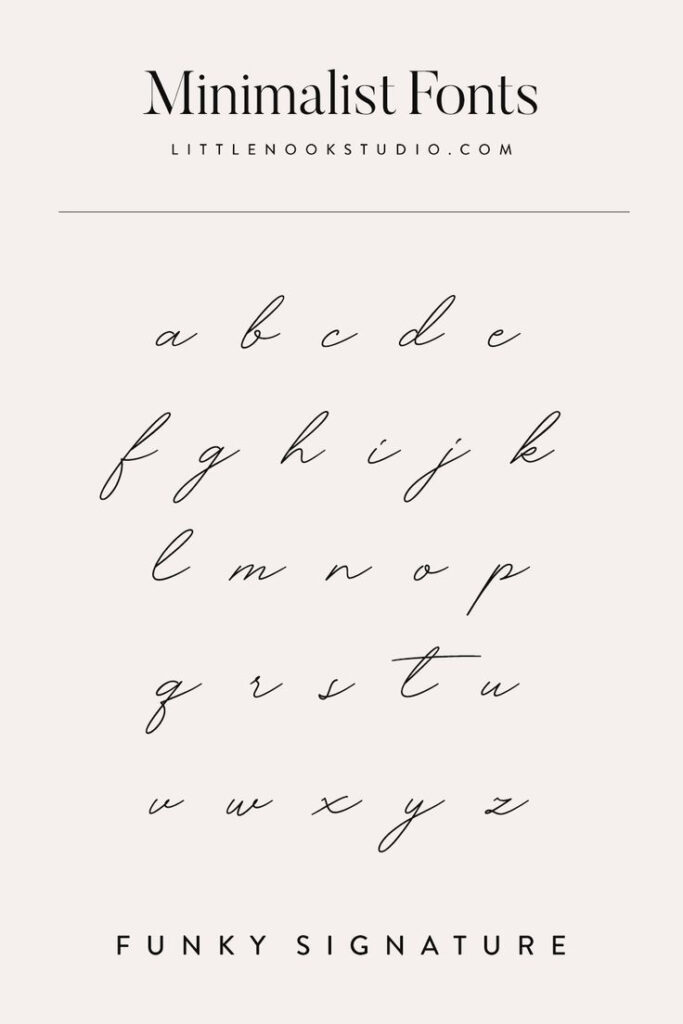 Minimalist Fonts
LITTLENOOKSTUDIO.COM
a b c d e
f g h i j k
l m n o p
q r s t u
v w x y z
FUNKY SIGNATURE